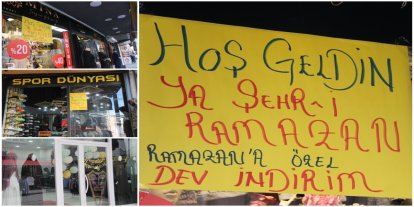 %20
%40
SPOR DÜNYASI
HOŞ GELDİN
YA ŞEHR-İ
RAMAZAN
RAMAZAN'A ÖZEL
DEV İNDİRİM